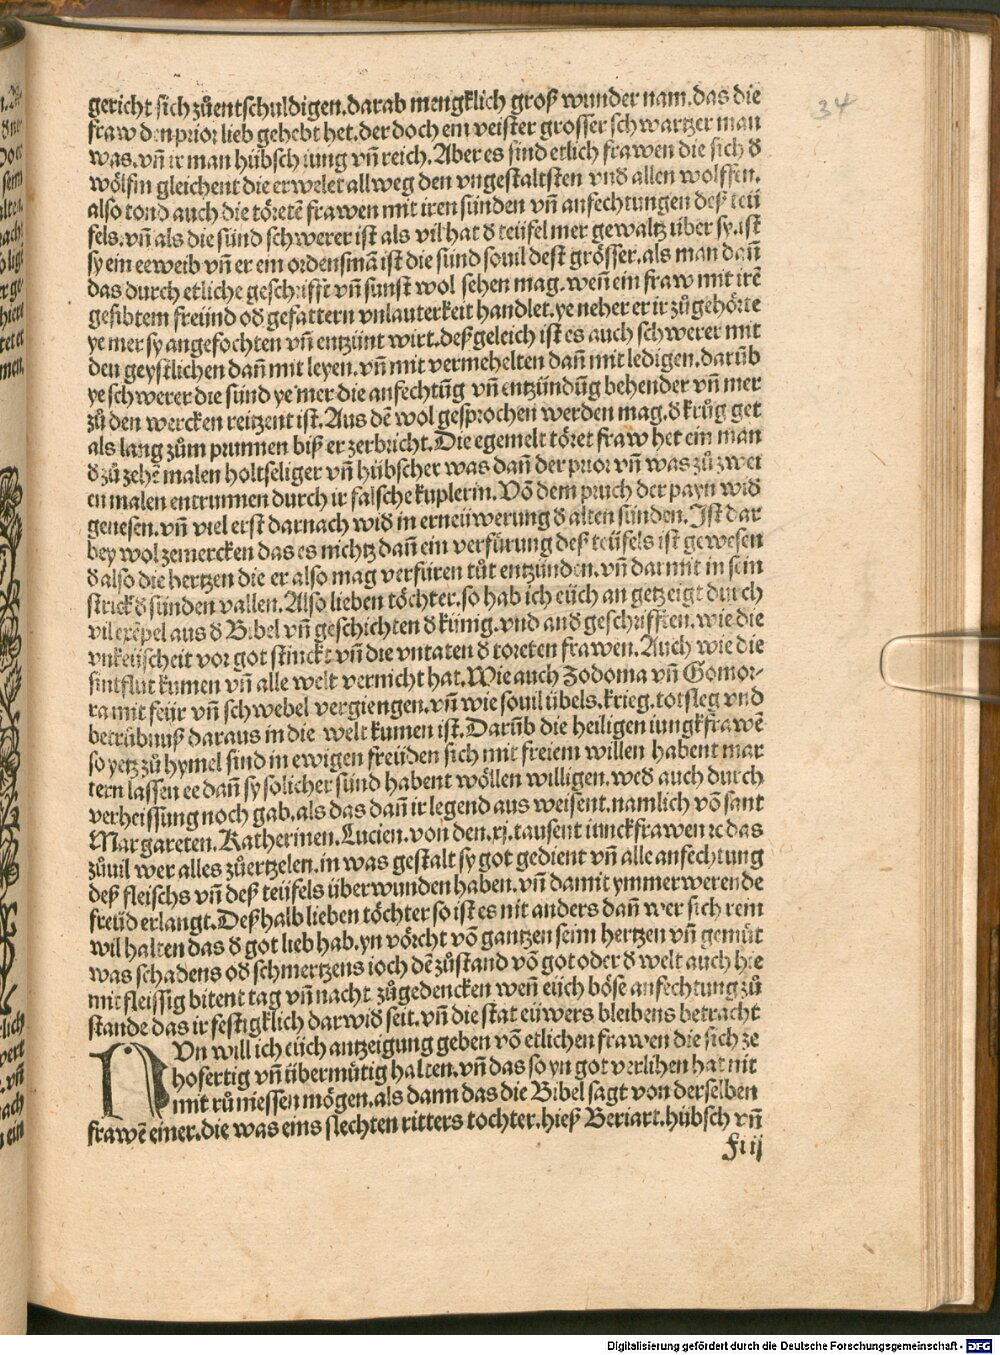 34
gericht sich zůentschuldigen.darab mengklich groß wunder nam.das die
fraw den prior lieb gehebt het.der doch ein veister grosser schwartzer man
was.vñ ir man hübsch iung vñ reich.Aber es sind etlich frawen die sich ď
wölfin gleichent die erwelet allweg den vngestaltsten vnď allen wolffen.
also tond auch die töretē frawen mit iren sünden vñ anfechtungen deß teü
fels.vñ als die sünd schwerer ist als vil hat ď teüfel mer gewaltz über sy.ist
sy ein eeweib vñ er ein ordensmā ist die sünd souil dest grösser.als man dañ
das durch etliche geschrifft vñ sunst wol sehen mag.weñ ein fraw mit irē
gesibtem freünd oď gefattern vnlauterkeit handlet.ye neher er ir zůgehörte
ye mer sy angefochten vñ entzünt wirt.deßgeleich ist es auch schwerer mit
den geystlichen dañ mit leyen.vñ mit vermehelten dañ mit ledigen.darūb
ye schwerer die sünd ye mer die anfechtūg vñ entzündūg behender vñ mer
zů den wercken reitzent ist.Aus dē wol gesprochen werden mag.ď krůg get
als lang zům prunnen biß er zerbricht.Die egemelt töret fraw het ein man
ď zů zehē malen holtseliger vñ hübscher was dañ der prior vñ was zů zwei
en malen entrunnen durch ir falsche kuplerin.Vō dem pruch der payn wiď
genesen.vñ viel erst darnach wiď in erneüwerung ď alten sünden.Ist dar
bey wol zemercken das es nichtz dañ ein verfürung deß teüfels ist gewesen
ď also die hertzen die er also mag verfüren tůt entzünden.vñ dar mit in sein
strick ď sünden vallen.Also lieben töchter.so hab ich eüch an getzeigt durch
vil exēpel aus ď Bibel vñ geschichten ď künig.vnd anď geschrifften.wie die
vnkeüscheit vor got stinckt vñ die vntaten ď toreten frawen.Auch wie die
sintflut kumen vñ alle welt vernicht hat.Wie auch Zodoma vñ Gomor-
ra mit feür vñ schwebel vergiengen.vñ wie souil übels.krieg.totsleg vnd
betrübnuß daraus in die welt kumen ist.Darūb die heiligen iungkfrawē
so yetz zů hymel sind in ewigen freüden sich mit freiem willen habent mar
tern lassen ee dañ sy solicher sünd habent wöllen willigen.weď auch durch
verheissung noch gab.als das dañ ir legend aus weisent.namlich vō sant
Margareten.Katherinen.Lucien.von den.xj.tausent iunckfrawen ⁊c das
zůuil wer alles zůertzelen.in was gestalt sy got gedient vñ alle anfechtung
deß fleischs vñ deß teüfels überwunden haben.vñ damit ymmer werende
freüd erlangt.Deßhalb lieben töchter so ist es nit anders dañ wer sich rein
wil halten das ď got lieb hab.yn vörcht vō gantzen seim hertzen vñ gemüt
was schadens oď schmertzens ioch dē zůstand vō got oder ď welt auch hie
mit fleissig bitent tag vñ nacht zůgedencken weñ eüch böse anfechtung zů
stande das ir festigklich darwiď seit.vñ die stat eüwers bleibens betracht
NVn will ich eüch antzeigung geben vō etlichen frawen die sich ze
hofertig vñ übermütig halten.vñ das so yn got verlihen hat nit
mit rů niessen mögen.als dann das die Bibel sagt von derselben
frawē einer.die was eins slechten ritters tochter.hieß Beriart.hübsch vñ
f iij
Digitalisierung gefördert durch die Deutsche Forschungsgemeinschaft - DFG